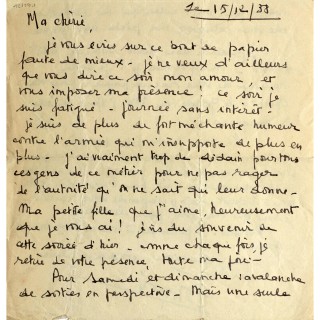 Le 15/12/33
Ma chérie,
je vous écris sur ce bout de papier
faute de mieux. je ne veux d'ailleurs
que vous dire ce soir mon amour, et
vous imposer ma présence! ce soir je
suis fatigué - journée sans intérêt.
je suis de plus de fort méchante humeur
contre l'armée qui m'insupporte de plus en
plus. j'ai vraiment trop de dédain pour tous
ces gens de ce métier pour ne pas rager
de l'autorité qu'on ne sait qui leur donne.
Ma petite fille que j'aime, heureusement
que je vous ai! du souvenir de
cette soirée d'hier. comme chaque fois je
retire de votre présence, toute ma joie.
Pour samedi et dimanche : avalanche
de sorties en perspective. Mais une seule